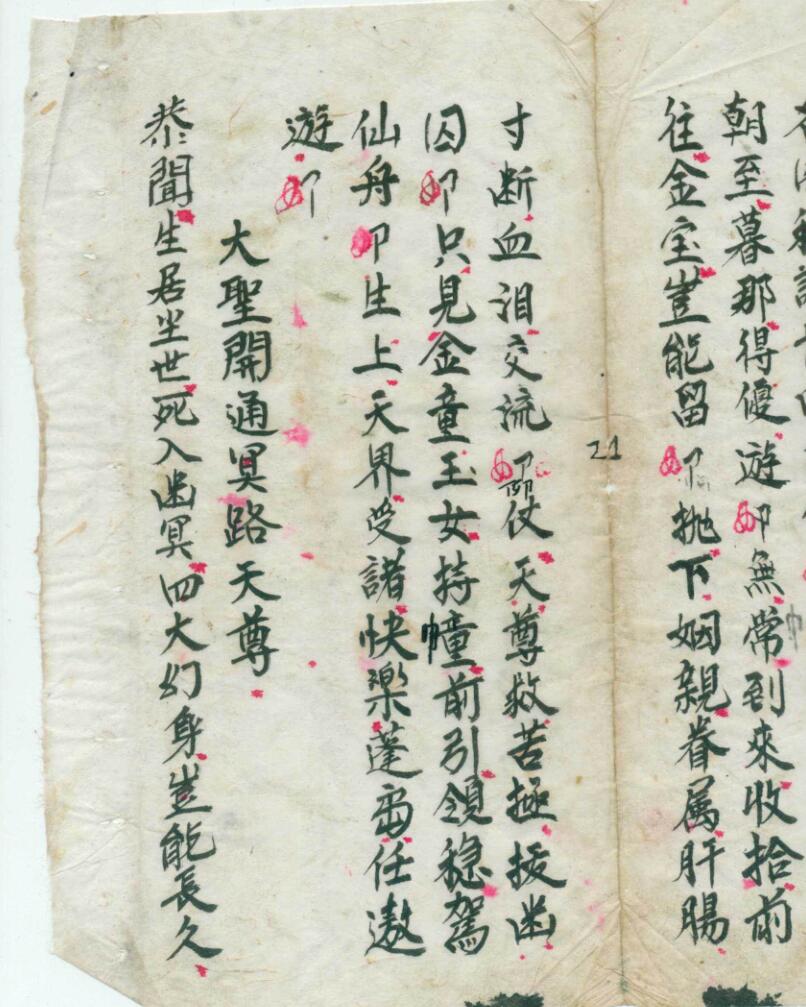 朝至暮那得優遊卬無常到來收拾前
往金宝豈能留卬抛下姻親眷属肝腸
21
寸断血泪交流卬仗天尊救苦拯拔幽
囚卬只見金童玉女持幢前引領稳駕
仙舟卬生上天界受諸快樂蓬島任遨
遊卬
大聖開通冥路天尊
恭聞生居尘世死入幽冥四大幻身豈能長久